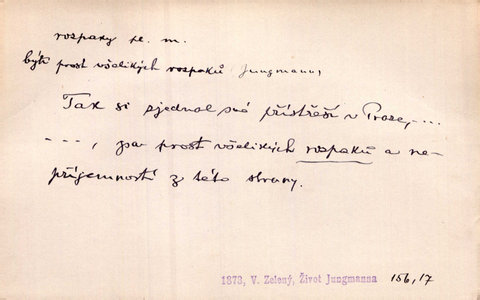 rozpaky pl. m.
býti prost všelikých rozpaků (Jungmann)
Tak si zjednal své přístřeší v Praze, ...
---, jsa prost všelikých rozpaků a ne-
příjemností z této strany.
1873, V. Zelený, Život Jungmanna 156,17